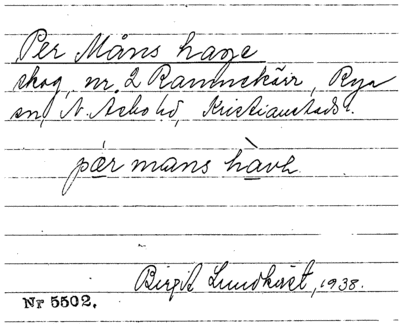 Per Måns hage
skog, nr. 2 Ramnekärr, Rya
sn, N. Åsbo hd, Kristianstads l.
pær måns hàvh
Birgit Lundkvist, 1938.
Nr 5502.